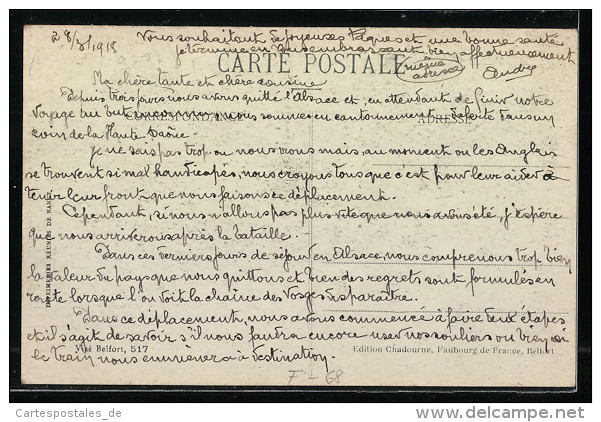 28/3/1918
Vous souhaitant de joyeuses Pâques et une bonne santé
je termine en vous embrassant bien affectueusement
André
CARTE POSTALE
même
adresse
Ma chère tante et chère cousine
CORRESPONDANCE
ADRESSE
Depuis trois jours nous avons quitté l'Alsace et, en attendant de finir notre
voyage au but inconnu, nous sommes en cantonnement d'alerte dans un
coin de la Haute Saône.
Je ne sais pas trop où nous irons mais, au moment où les Anglais
se trouvent si mal handicapés, nous croyons tous que c'est pour leur aider à
tenir leur front que nous faisons ce déplacement.
Cependant, si nous n'allons pas plus vite que nous avons été, j'espère
que nous arriverons après la bataille.
Dans ces derniers jours de séjour en Alsace, nous comprenons trop bien
la valeur du pays que nous quittons et bien des regrets sont formulés en
route lorsque l'on voit la chaîne des Vosges disparaître.
Dans ce déplacement, nous avons commencé à faire deux étapes
et il s'agit de savoir s'il nous faudra encore user nos souliers ou bien si
le train nous emmènera à destination.
IMPRIMERIES RÉUNIES DE NANCY
Belfort, 517
Edition Chadourne, Faubourg de France, Belfort
F-68
Cartespostales_de
www.delcampe.net